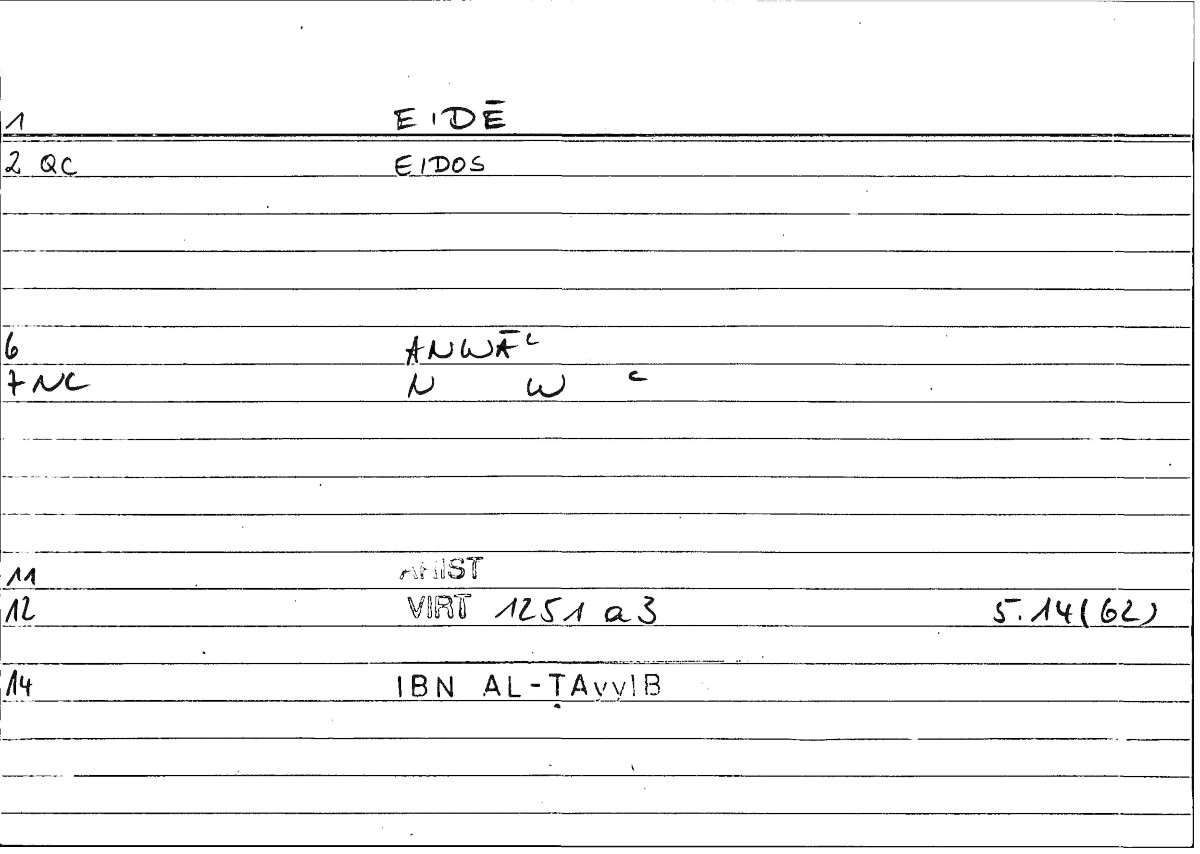 1 EIDĒ
2 QC EIDOS
6 ANWĀʿ
7 NC N W ʿ
11 ARIST
12 VIRT 1251 a3 5.14(62)
14 IBN AL-ṬAyyIB